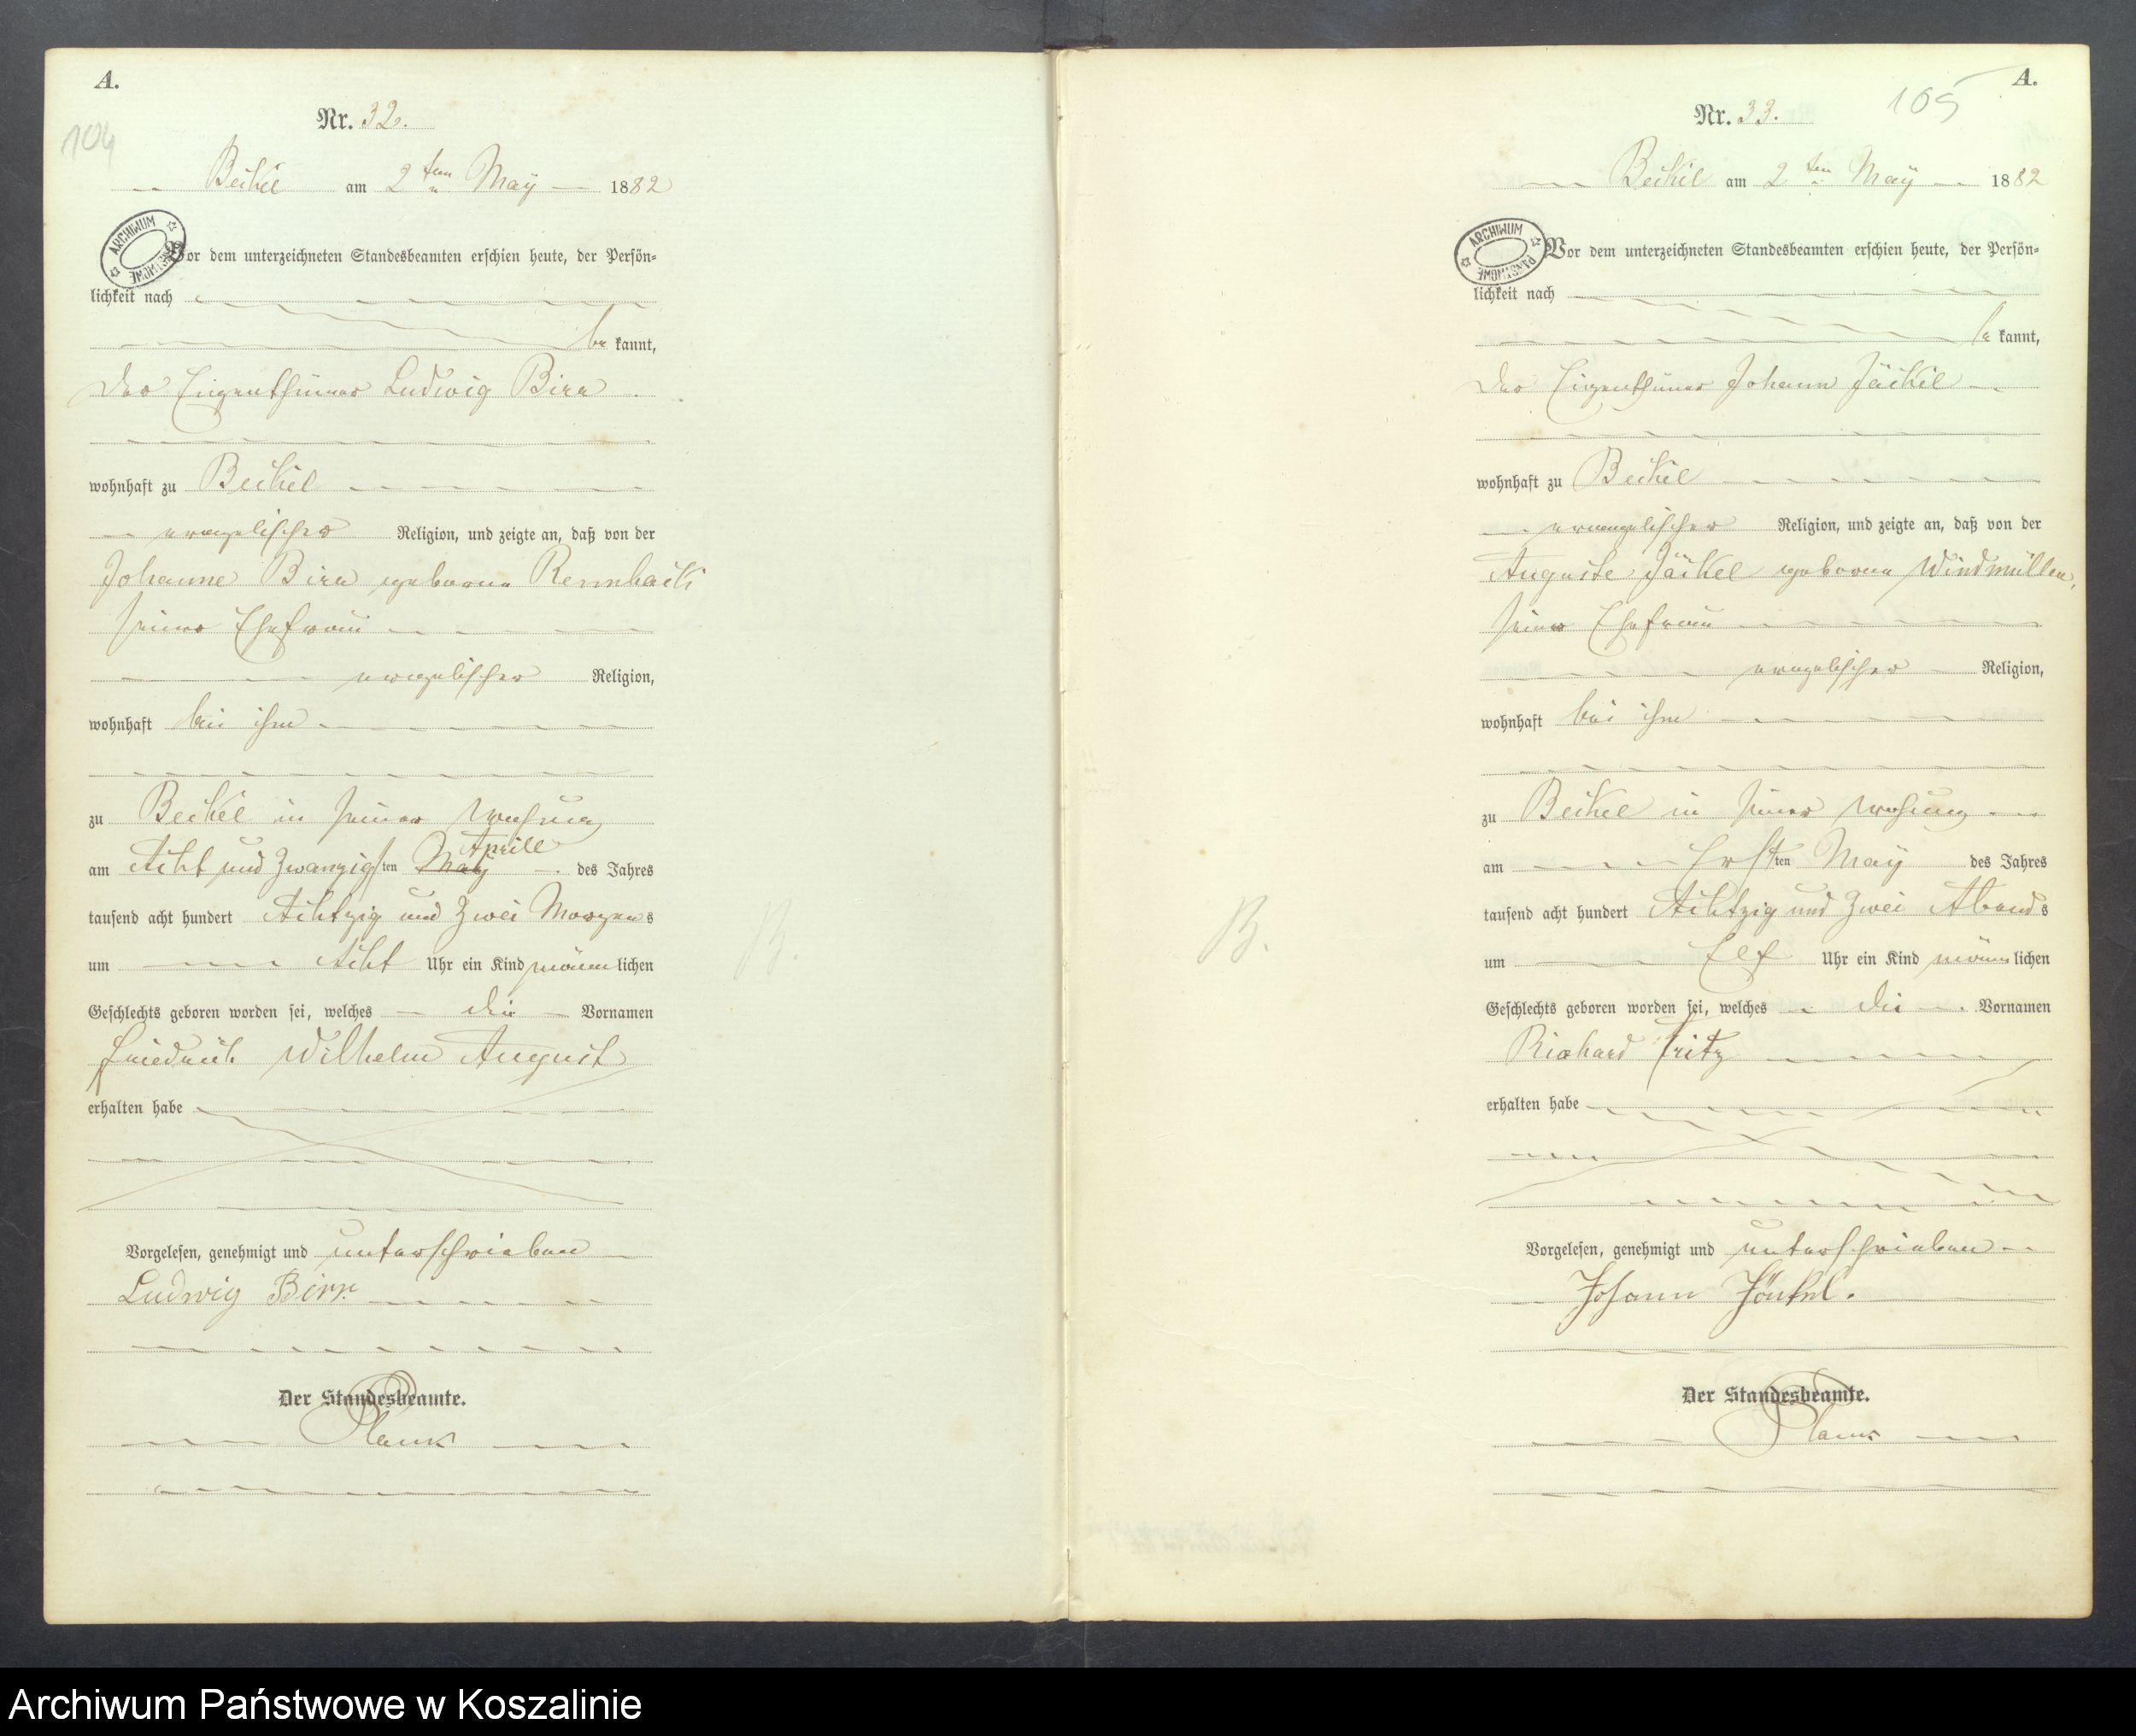 A.
104
Nr. 32.
Beikel am 2ten May 1882
ARCHIWUM PAŃSTWOWE
Vor dem unterzeichneten Standesbeamten erschien heute, der Persön-
lichkeit nach
be kannt,
der Eigenthümer Ludwig Birr
wohnhaft zu Beikel
evangelischer Religion, und zeigte an, daß von der
Johanne Birr geborene
seiner Ehefrau
evangelischer Religion,
wohnhaft bei ihm
zu Beikel in seiner Wohnung
Aprill
am Acht und Zwanzigsten May des Jahres
tausend acht hundert Achtzig und Zwei Morgens
um Acht Uhr ein Kind männlichen
Geschlechts geboren worden sei, welches die Vornamen
Friedrich Wilhelm August
erhalten habe
Vorgelesen, genehmigt und unterschrieben
Ludwig Birr.
Der Standesbeamte.
B.
A.
105
Nr. 33.
Beikel am 2ten May 1882
ARCHIWUM PAŃSTWOWE
Vor dem unterzeichneten Standesbeamten erschien heute, der Persön-
lichkeit nach
be kannt,
der Eigenthümer Johann Jäckel
wohnhaft zu Beikel
evangelischer Religion, und zeigte an, daß von der
Auguste Jäckel geborene Windmüller,
seiner Ehefrau
evangelischer Religion,
wohnhaft bei ihm
zu Beikel in seiner Wohung
am Ersten May des Jahres
tausend acht hundert Achtzig und Zwei Abends
um Elf Uhr ein Kind männlichen
Geschlechts geboren worden sei, welches die Vornamen
Richard Fritz
erhalten habe
Vorgelesen, genehmigt und unterschrieben
Johann Jäckel.
Der Standesbeamte.
B.
Archiwum Państwowe w Koszalinie